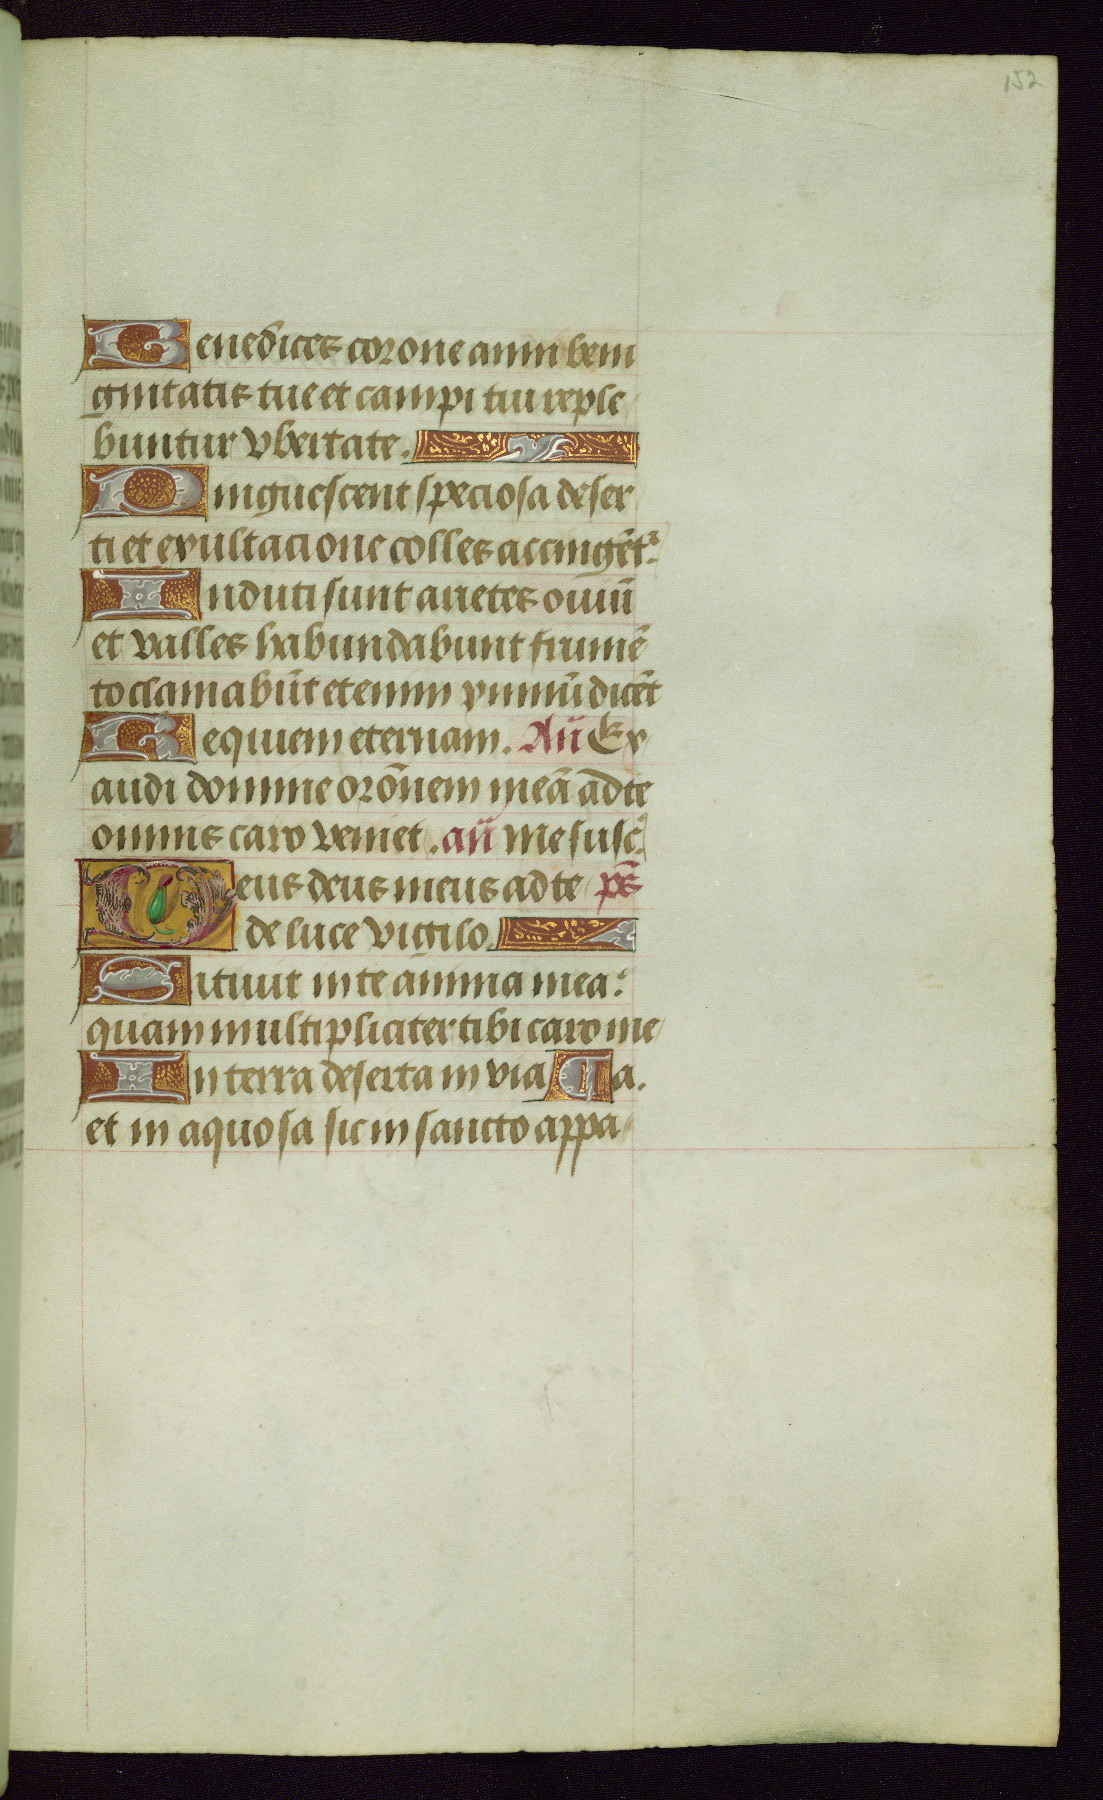 152
Benedices corone anni beni
gnitatis tue et campi tui reple
buntur vbertate.
Pinguescent speciosa deser
ti et exultacione colles accingēt᷑.
Induti sunt arietes ouiū
et valles habundabunt frumē
to clamabūt etenim ymnū dicēt
Requiem eternam. Añ Ex
audi domine orōnem meā ad te
omnis caro veniet. añ Me susc̄.
Deus deus meus ad te ps̄
de luce vigilo.
Sitiuit in te anima mea:
quam multipliciter tibi caro me
In terra deserta in via ¶ a.
et in aquosa sic in sancto appa